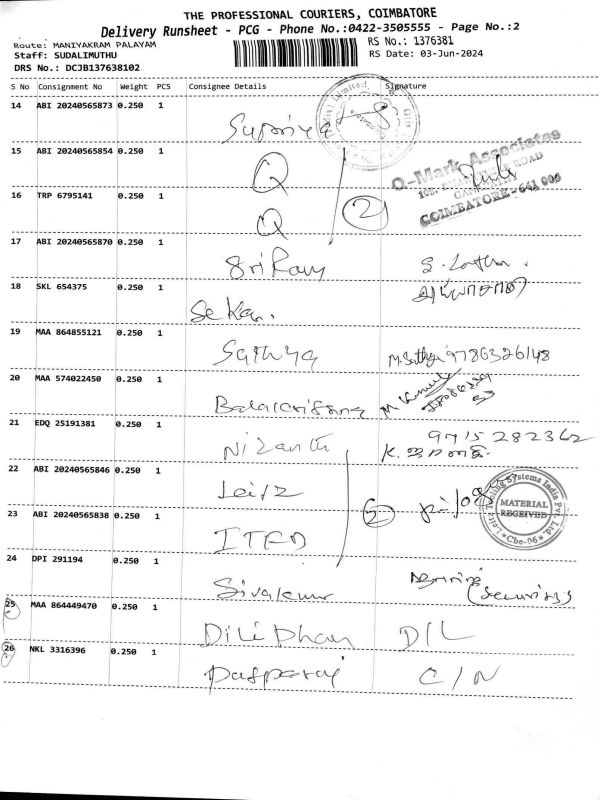 THE PROFESSIONAL COURIERS, COIMBATORE
Delivery Runsheet - PCG - Phone No.:0422-3505555 - Page No.:2
Route: MANIYAKRAM PALAYAM
RS No.: 1376381
Staff: SUDALIMUTHU
RS Date: 03-Jun-2024
DRS No.: DCJB137638102
S No Consignment No Weight PCS Consignee Details Signature
14 ABI 20240565873 0.250 1
Supriya
15 ABI 20240565854 0.250 1
Q
Q-Mark Associates
ROAD
COIMBATORE - 641 006
16 TRP 6795141 0.250 1
Q
2
17 ABI 20240565870 0.250 1
Sri Ram
18 SKL 654375 0.250 1
Sekar.
19 MAA 864855121 0.250 1
Sathya 9786326148
20 MAA 574022450 0.250 1
Balakrishna
21 EDQ 25191381 0.250 1
Nizanth
9715282362
22 ABI 20240565846 0.250 1
Leitz
2
Leitz Tooling Systems India Pvt. Ltd.
MATERIAL
RECEIVED
* Cbe-06 *
23 ABI 20240565838 0.250 1
ITFD
24 DPI 291194 0.250 1
Sivakumar (Security)
25 MAA 864449470 0.250 1
Dili Dharan D/L
26 NKL 3316396 0.250 1
C/N